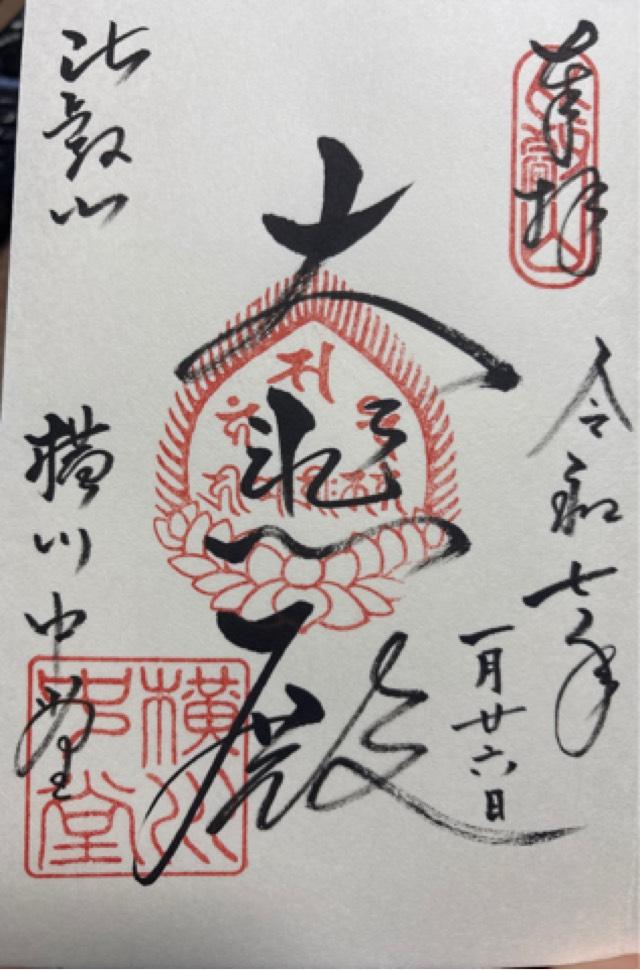 奉拝
令和七年
一月廿六日
大悲殿
比叡山
横川中堂
横川中堂